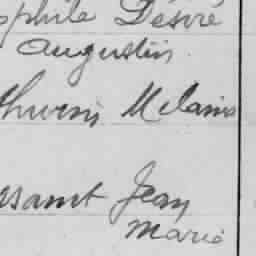 ophile Désiré
Augustin
thurin Mélanie
ssant Jean
Marie